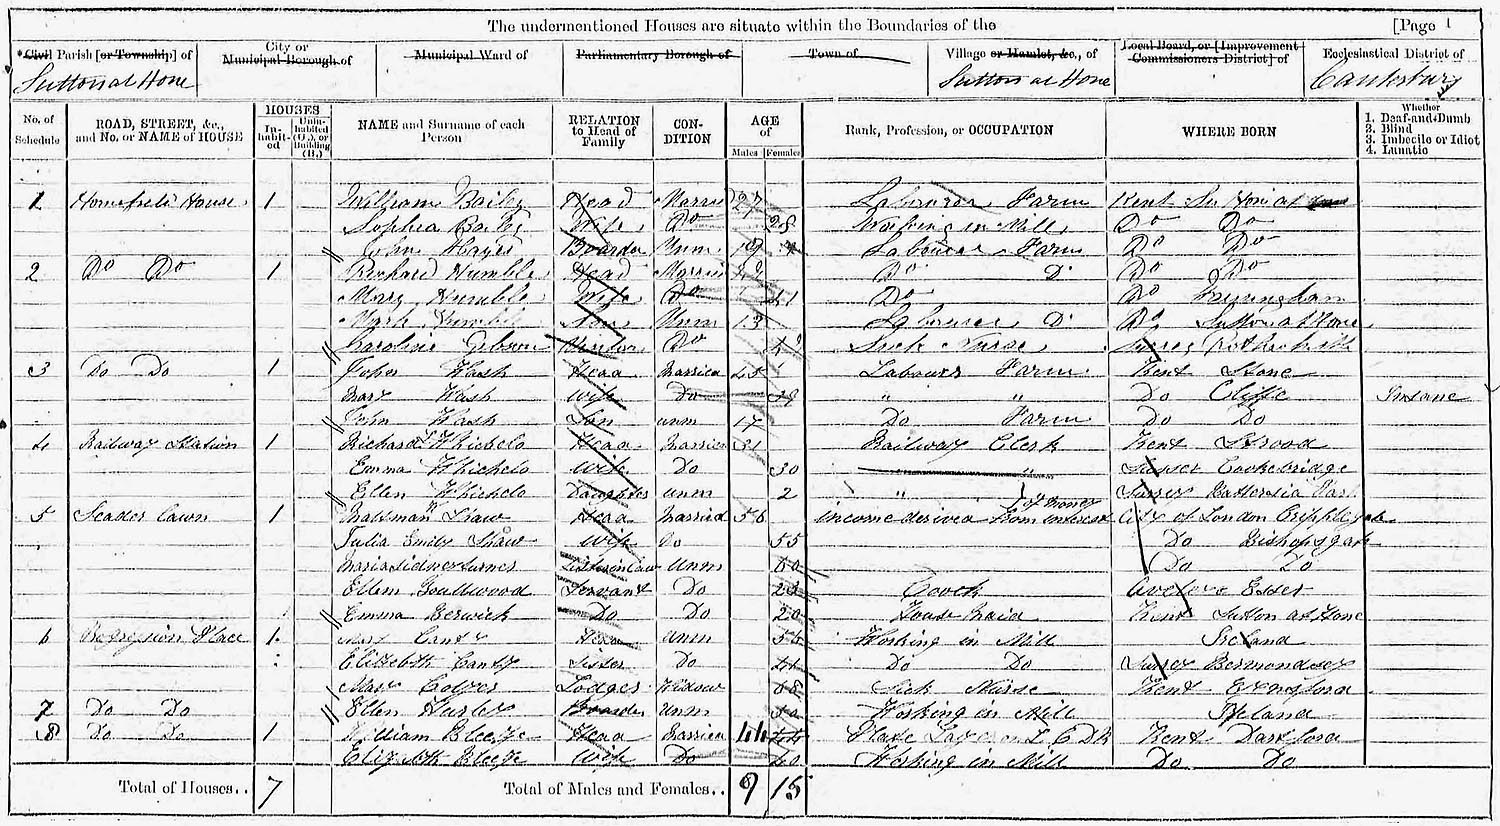 The undermentioned Houses are situate within the Boundaries of the [Page 1
*Civil Parish [or Township] of City or Municipal Borough of Municipal Ward of Parliamentary Borough of Town of Village or Hamlet, &c., of Local Board, or [Improvement Commissioners District] of Ecclesiastical District of
Sutton at Hone Sutton at Hone Canterbury
No. of Schedule ROAD, STREET, &c., and No. or NAME of HOUSE HOUSES In-habit-ed Unin-habited (U.), or Building (B.) NAME and Surname of each Person RELATION to Head of Family CON-DITION AGE of Males Females Rank, Profession, or OCCUPATION WHERE BORN Whether 1. Deaf-and-Dumb 2. Blind 3. Imbecile or Idiot 4. Lunatic
1 Homefield House 1 William Bailey Head Married 27 Labourer Farm Kent
Sophia Bailey Wife Do 28 Working in Mill Do Do
John Hayes Boarder Unm 19 Labourer Farm Do Do
2 Do Do 1 Richard Humble Head Married Do Do Do Do
Mary Humble Wife Do 41 Do Do
Mark Humble Son Unm 13 Labourer Do Do Sutton at Hone
Caroline Gibson Do Sick Nurse Surrey Rotherhithe
3 Do Do 1 John Wash Head Married 45 Labourer Farm Kent Stone
Mary Wash Wife Do 39 " " Do Cliffe Insane
John Wash Son unm 17 Do Farm Do Do
4 Railway Station 1 Richard Whichelo Head Married 31 Railway Clerk Kent Strood
Emma Whichelo Wife Do 30 " Sussex Cooksbridge
Ellen Whichelo Daughter unm 2 " Surrey Battersea Park
5 Lawn 1 Shaw Head Married 56 income derived from interest of money City of London Cripplegate
Julia Emily Shaw Wife Do 55 Do Bishopsgate
Maria Sidney Turner Sister in law Unm 60 Do Do
Ellem Servant Do 23 Cook Essex
Emma Berwick Do Do 20 House Maid Kent Sutton at Hone
6 Place 1 Mary Canty Head unm 56 Working in Mill Ireland
Elizabeth Canty Sister Do Do Do Surrey Bermondsey
Mary Lodger Widow 68 Sick Nurse Kent Eynsford
7 Do Do Ellen Hurley Boarder Unm 50 Working in Mill Ireland
8 Do Do 1 William Head Married 44 Plate Layer on L C D R Kent Dartford
Elizabeth Wife Do 40 Working in Mill Do Do
Total of Houses.. 7 Total of Males and Females.. 9 15